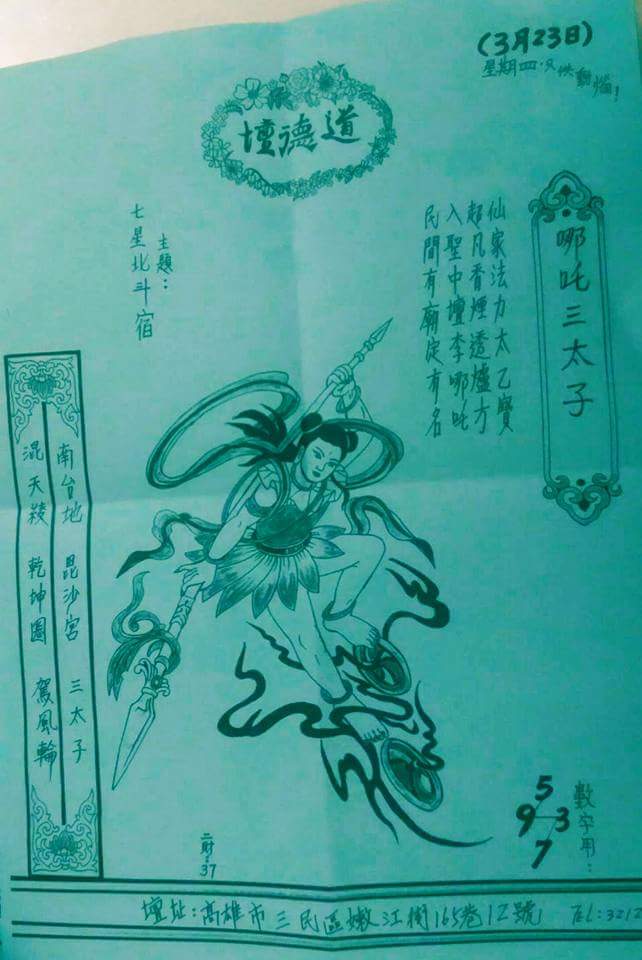 (3月23日)
星期四.又快
道德壇
哪吒三太子
仙家法力太乙寶
超凡香煙透爐方
入聖中壇李哪吒
民間有廟定有名
主題:
七星北斗宿
南台地 昆沙宮 三太子
混天綾 乾坤圈 駕風輪
數字用:
5
9 3
7
二財.37
壇址:高雄市三民區嫩江街165巷12號 TEL:3212